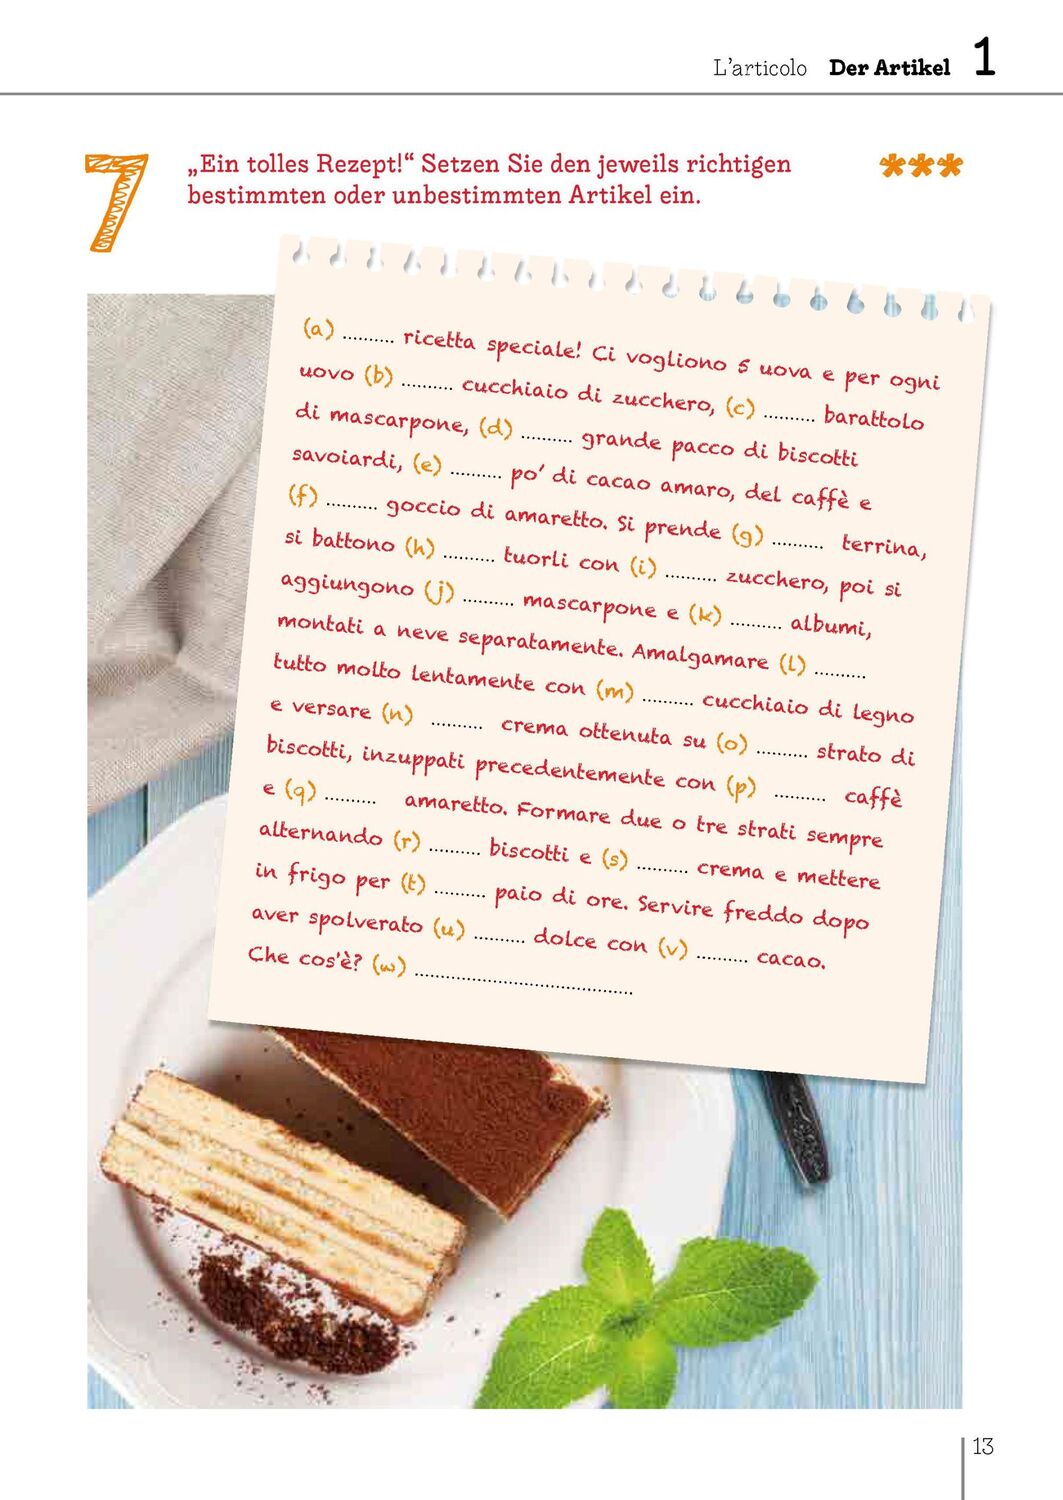 L'articolo Der Artikel 1
7 „Ein tolles Rezept!“ Setzen Sie den jeweils richtigen ***
bestimmten oder unbestimmten Artikel ein.
(a) .......... ricetta speciale! Ci vogliono 5 uova e per ogni
uovo (b) .......... cucchiaio di zucchero, (c) .......... barattolo
di mascarpone, (d) .......... grande pacco di biscotti
savoiardi, (e) .......... po' di cacao amaro, del caffè e
(f) .......... goccio di amaretto. Si prende (g) .......... terrina,
si battono (h) .......... tuorli con (i) .......... zucchero, poi si
aggiungono (j) .......... mascarpone e (k) .......... albumi,
montati a neve separatamente. Amalgamare (l) ..........
tutto molto lentamente con (m) .......... cucchiaio di legno
e versare (n) .......... crema ottenuta su (o) .......... strato di
biscotti, inzuppati precedentemente con (p) .......... caffè
e (q) .......... amaretto. Formare due o tre strati sempre
alternando (r) .......... biscotti e (s) .......... crema e mettere
in frigo per (t) .......... paio di ore. Servire freddo dopo
aver spolverato (u) .......... dolce con (v) .......... cacao.
Che cos'è? (w) ..........................................
13